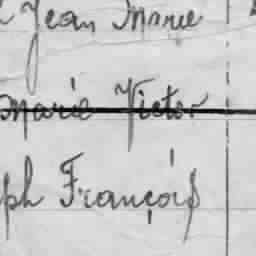 Jean Marie
Marie Victor
ph François